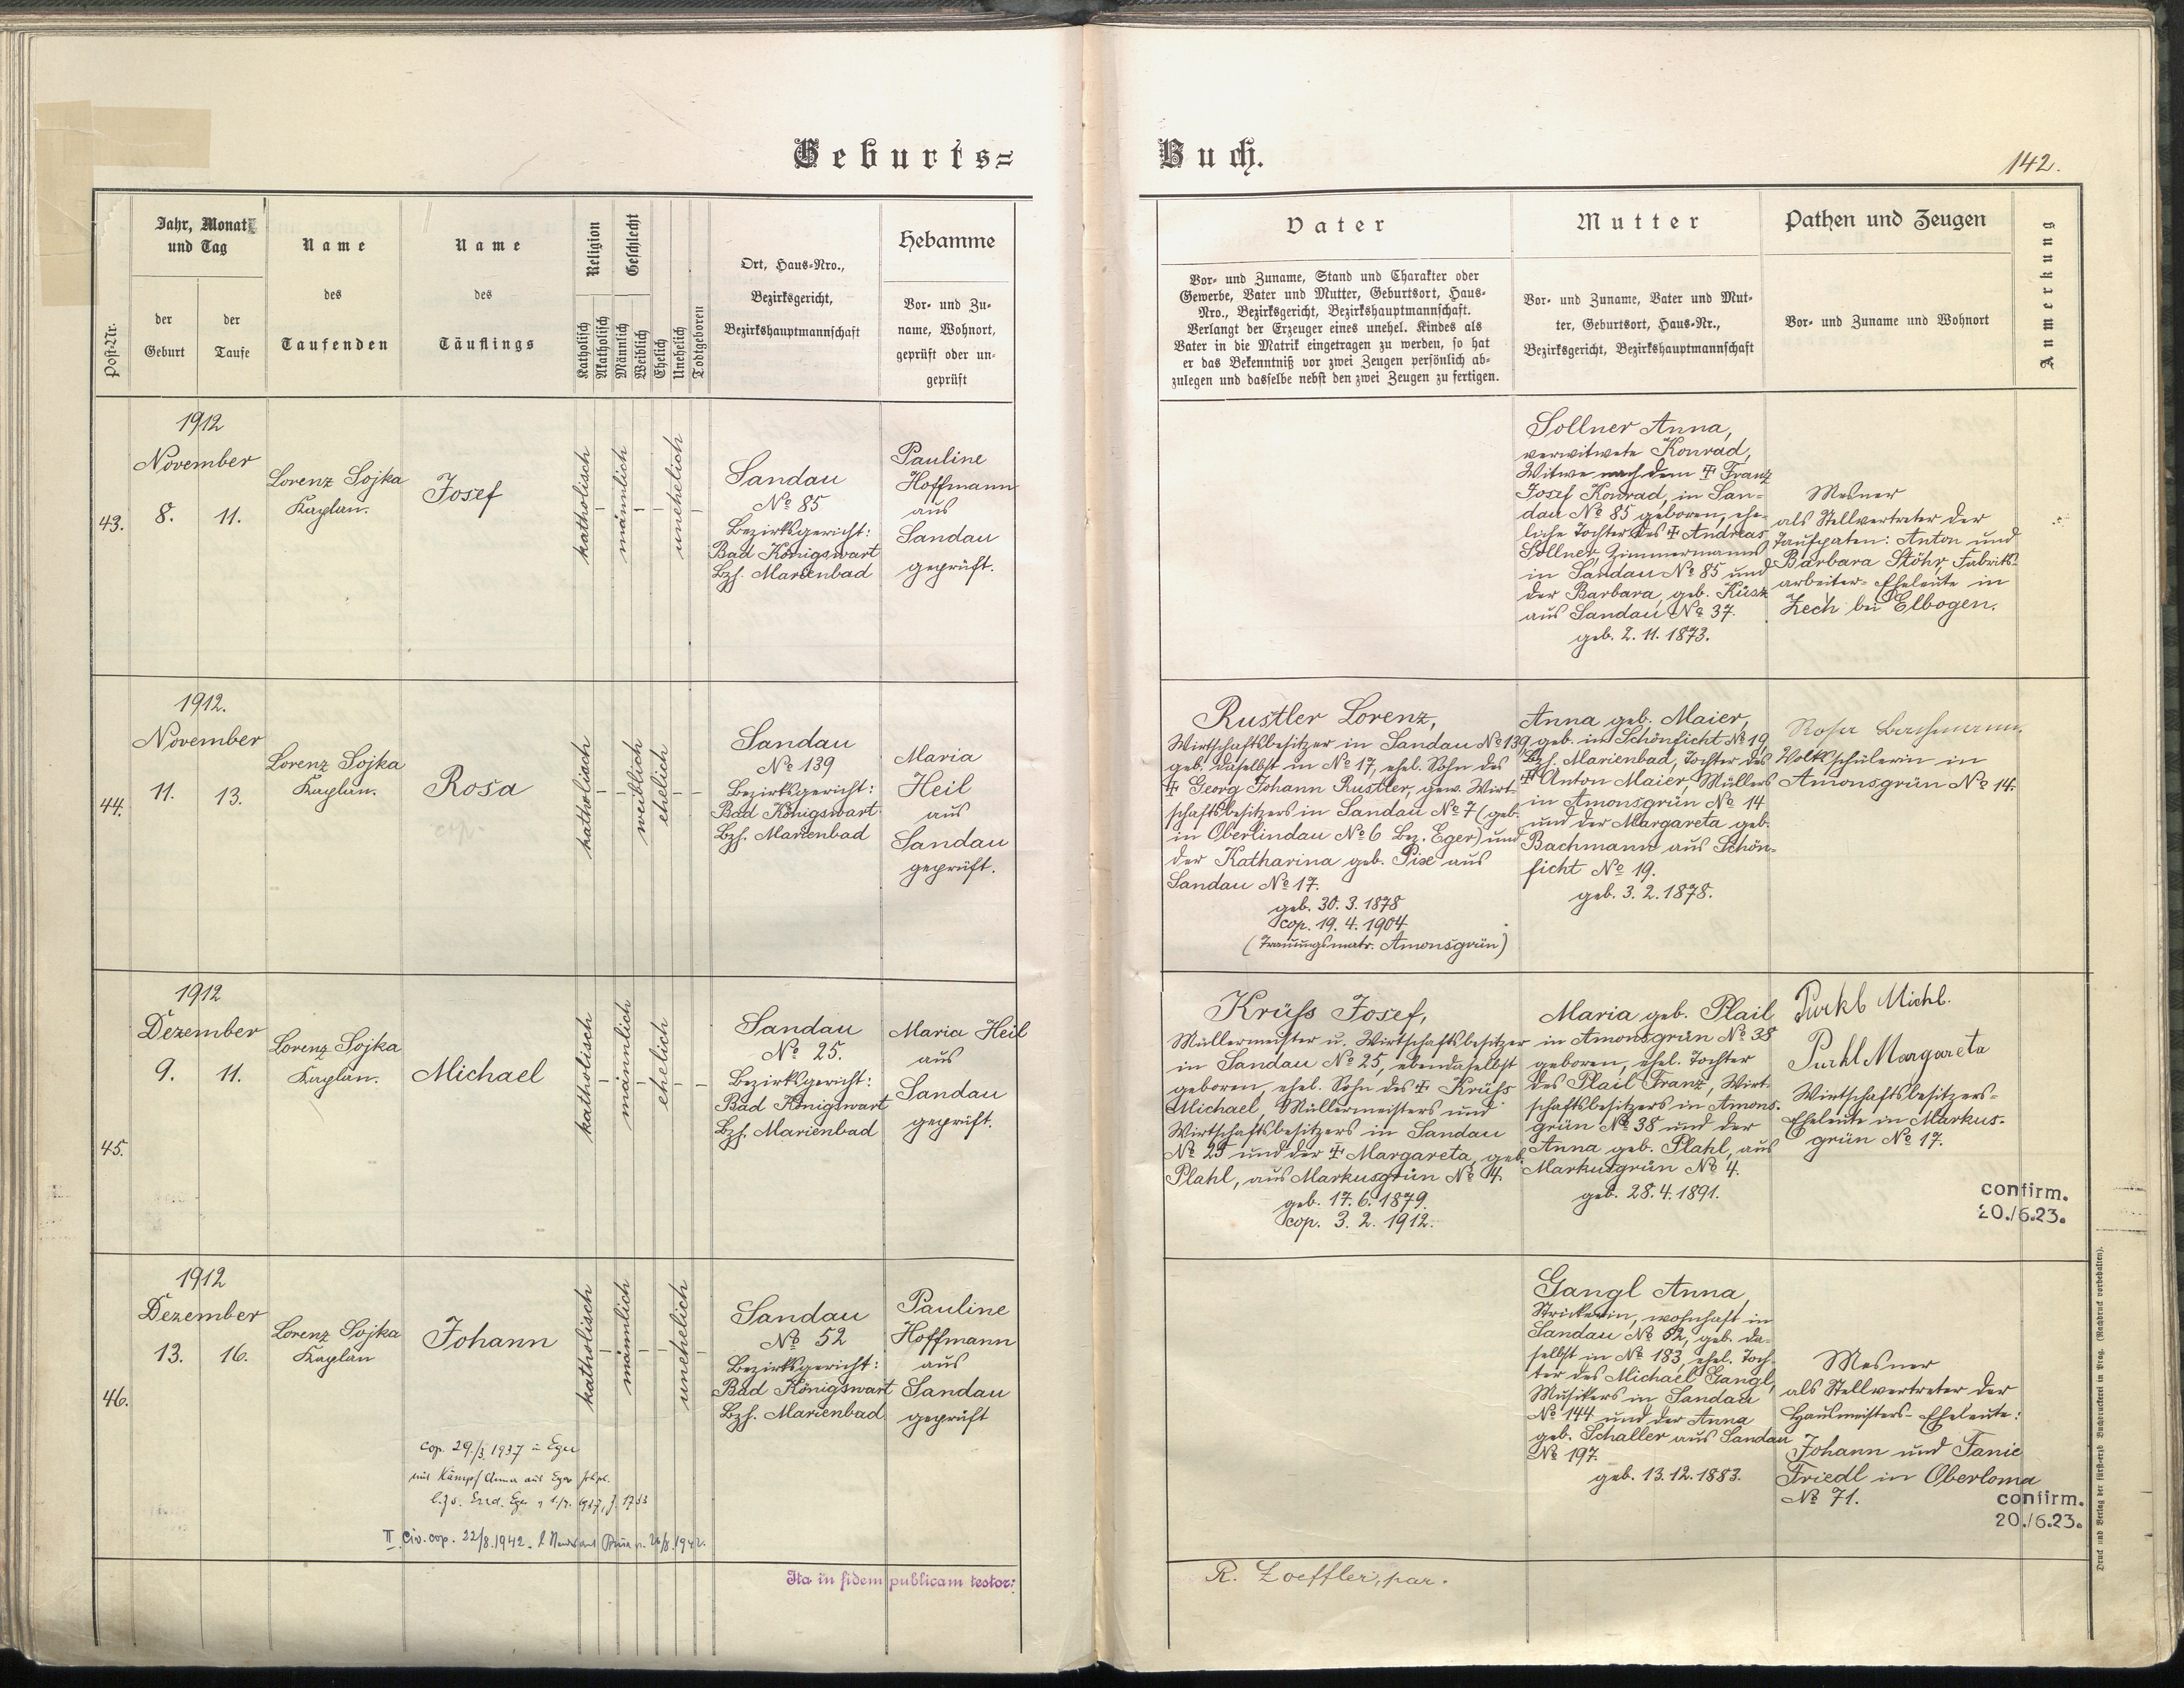 Geburts=
Buch.
142.
Post-Nr.
Jahr, Monat
und Tag
der
Geburt
der
Taufe
Name
des
Taufenden
Name
des
Täuflings
Religion
Katholisch
Akatholisch
Geschlecht
Männlich
Weiblich
Ehelich
Unehelich
Todtgeboren
Ort, Haus-Nro.,
Bezirksgericht,
Bezirkshauptmannschaft
Hebamme
Vor- und Zu-
name, Wohnort,
geprüft oder un-
geprüft
Vater
Vor- und Zuname, Stand und Charakter oder
Gewerbe, Vater und Mutter, Geburtsort, Haus-
Nro., Bezirksgericht, Bezirkshauptmannschaft.
Verlangt der Erzeuger eines unehel. Kindes als
Vater in die Matrik eingetragen zu werden, so hat
er das Bekenntniß vor zwei Zeugen persönlich ab-
zulegen und dasselbe nebst den zwei Zeugen zu fertigen.
Mutter
Vor- und Zuname, Vater und Mut-
ter, Geburtsort, Haus-Nr.,
Bezirksgericht, Bezirkshauptmannschaft
Pathen und Zeugen
Vor- und Zuname und Wohnort
Anmerkung
43.
1912
November
8. 11.
Lorenz Sojka
Kaplan.
Josef
katholisch
männlich
unehelich
Sandau
No 85
Bezirksgericht:
Bad Königswart
Bzh. Marienbad
Pauline
Hoffmann
aus
Sandau
geprüft.
Sollner Anna,
verwitwete Konrad,
Witwe nach dem ‡ Franz
Josef Konrad, in San=
dau No 85 geboren, ehe=
liche Tochter des ‡ Andreas
Sollner, Zimmermanns
in Sandau No 85 und
der Barbara, geb. Küsz
aus Sandau No 37.
geb. 2. 11. 1873.
Mesner
als Stellvertreter der
Taufpaten: Anton und
Barbara Stöhr, Fabriks=
arbeiter=Eheleute in
Zech bei Elbogen.
44.
1912.
November
11. 13.
Lorenz Sojka
Kaplan.
Rosa
katholisch
weiblich
ehelich
Sandau
No 139
Bezirksgericht:
Bad Königswart
Bzh. Marienbad
Maria
Heil
aus
Sandau
geprüft.
Rustler Lorenz,
Wirtschaftsbesitzer in Sandau No 139,
geb. daselbst in No 17, ehel. Sohn des
‡ Georg Johann Rustler, gew. Wirt=
schaftsbesitzers in Sandau No 7 (geb.
in Oberlindau No 6 Bez. Eger) und
der Katharina geb. Pix aus
Sandau No 17.
geb. 30. 3. 1878
cop. 19. 4. 1904
(Trauungsmatr. Amonsgrün)
Anna geb. Maier,
geb. in Schönficht No 19,
Bzh. Marienbad, Tochter des
‡ Anton Maier, Müllers
in Amonsgrün No 14
und der Margareta geb.
Bachmann aus Schön=
ficht No 19.
geb. 3. 2. 1878.
Rosa Bachmann,
Volksschülerin in
Amonsgrün No 14.
45.
1912
Dezember
9. 11.
Lorenz Sojka
Kaplan.
Michael
katholisch
männlich
ehelich
Sandau
No 25.
Bezirksgericht:
Bad Königswart
Bzh. Marienbad
Maria Heil
aus
Sandau
geprüft.
Krüss Josef,
Müllermeister u. Wirtschaftsbesitzer
in Sandau No 25, ebendaselbst
geboren, ehel. Sohn des ‡ Krüss
Michael, Müllermeisters und
Wirtschaftsbesitzers in Sandau
No 25 und der ‡ Margareta, geb.
Plahl, aus Markusgrün No 4.
geb. 17. 6. 1879.
cop. 3. 2. 1912.
Maria geb. Plail
in Amonsgrün No 38
geboren, ehel. Tochter
des Plail Franz, Wirt=
schaftsbesitzers in Amons=
grün No 38 und der
Anna geb. Plahl, aus
Markusgrün No 4.
geb. 28. 4. 1891.
Purkl Michl.
Purkl Margareta
Wirtschaftsbesitzers=
Eheleute in Markus=
grün No 17.
confirm.
20./6.23.
46.
1912
Dezember
13. 16.
Lorenz Sojka
Kaplan
Johann
katholisch
männlich
unehelich
Sandau
No 52
Bezirksgericht:
Bad Königswart
Bzh. Marienbad
Pauline
Hoffmann
aus
Sandau
geprüft
Gangl Anna,
Strickerin, wohnhaft in
Sandau No 52, geb. da=
selbst in No 183, ehel. Toch=
ter des Michael Gangl,
Musikers in Sandau
No 144 und der Anna
geb. Schaller aus Sandau
No 197.
geb. 13. 12. 1883.
Mesner
als Stellvertreter der
Hausmeisters-Eheleute:
Johann und Fanie
Friedl in Oberloma
No 71.
confirm.
20./6.23.
cop. 29./3. 1937 in Eger
mit Kämpf Anna aus Eger
II. Civ. cop. 22/8. 1942.
Ita in fidem publicam testor:
R. Loeffler, par.
Druck und Verlag der fürst-erzb. Buchdruckerei in Prag. (Nachdruck vorbehalten).